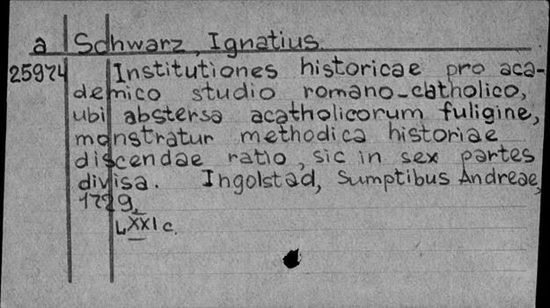 a Schwarz, Ignatius.
25974 Institutiones historicae pro aca-
demico studio romano-catholico,
ubi abstersa acatholicorum fuligine,
monstratur methodica historiae
discendae ratio, sic in sex partes
divisa. Ingolstad, Sumptibus Andreae,
1729.
LXXI c.